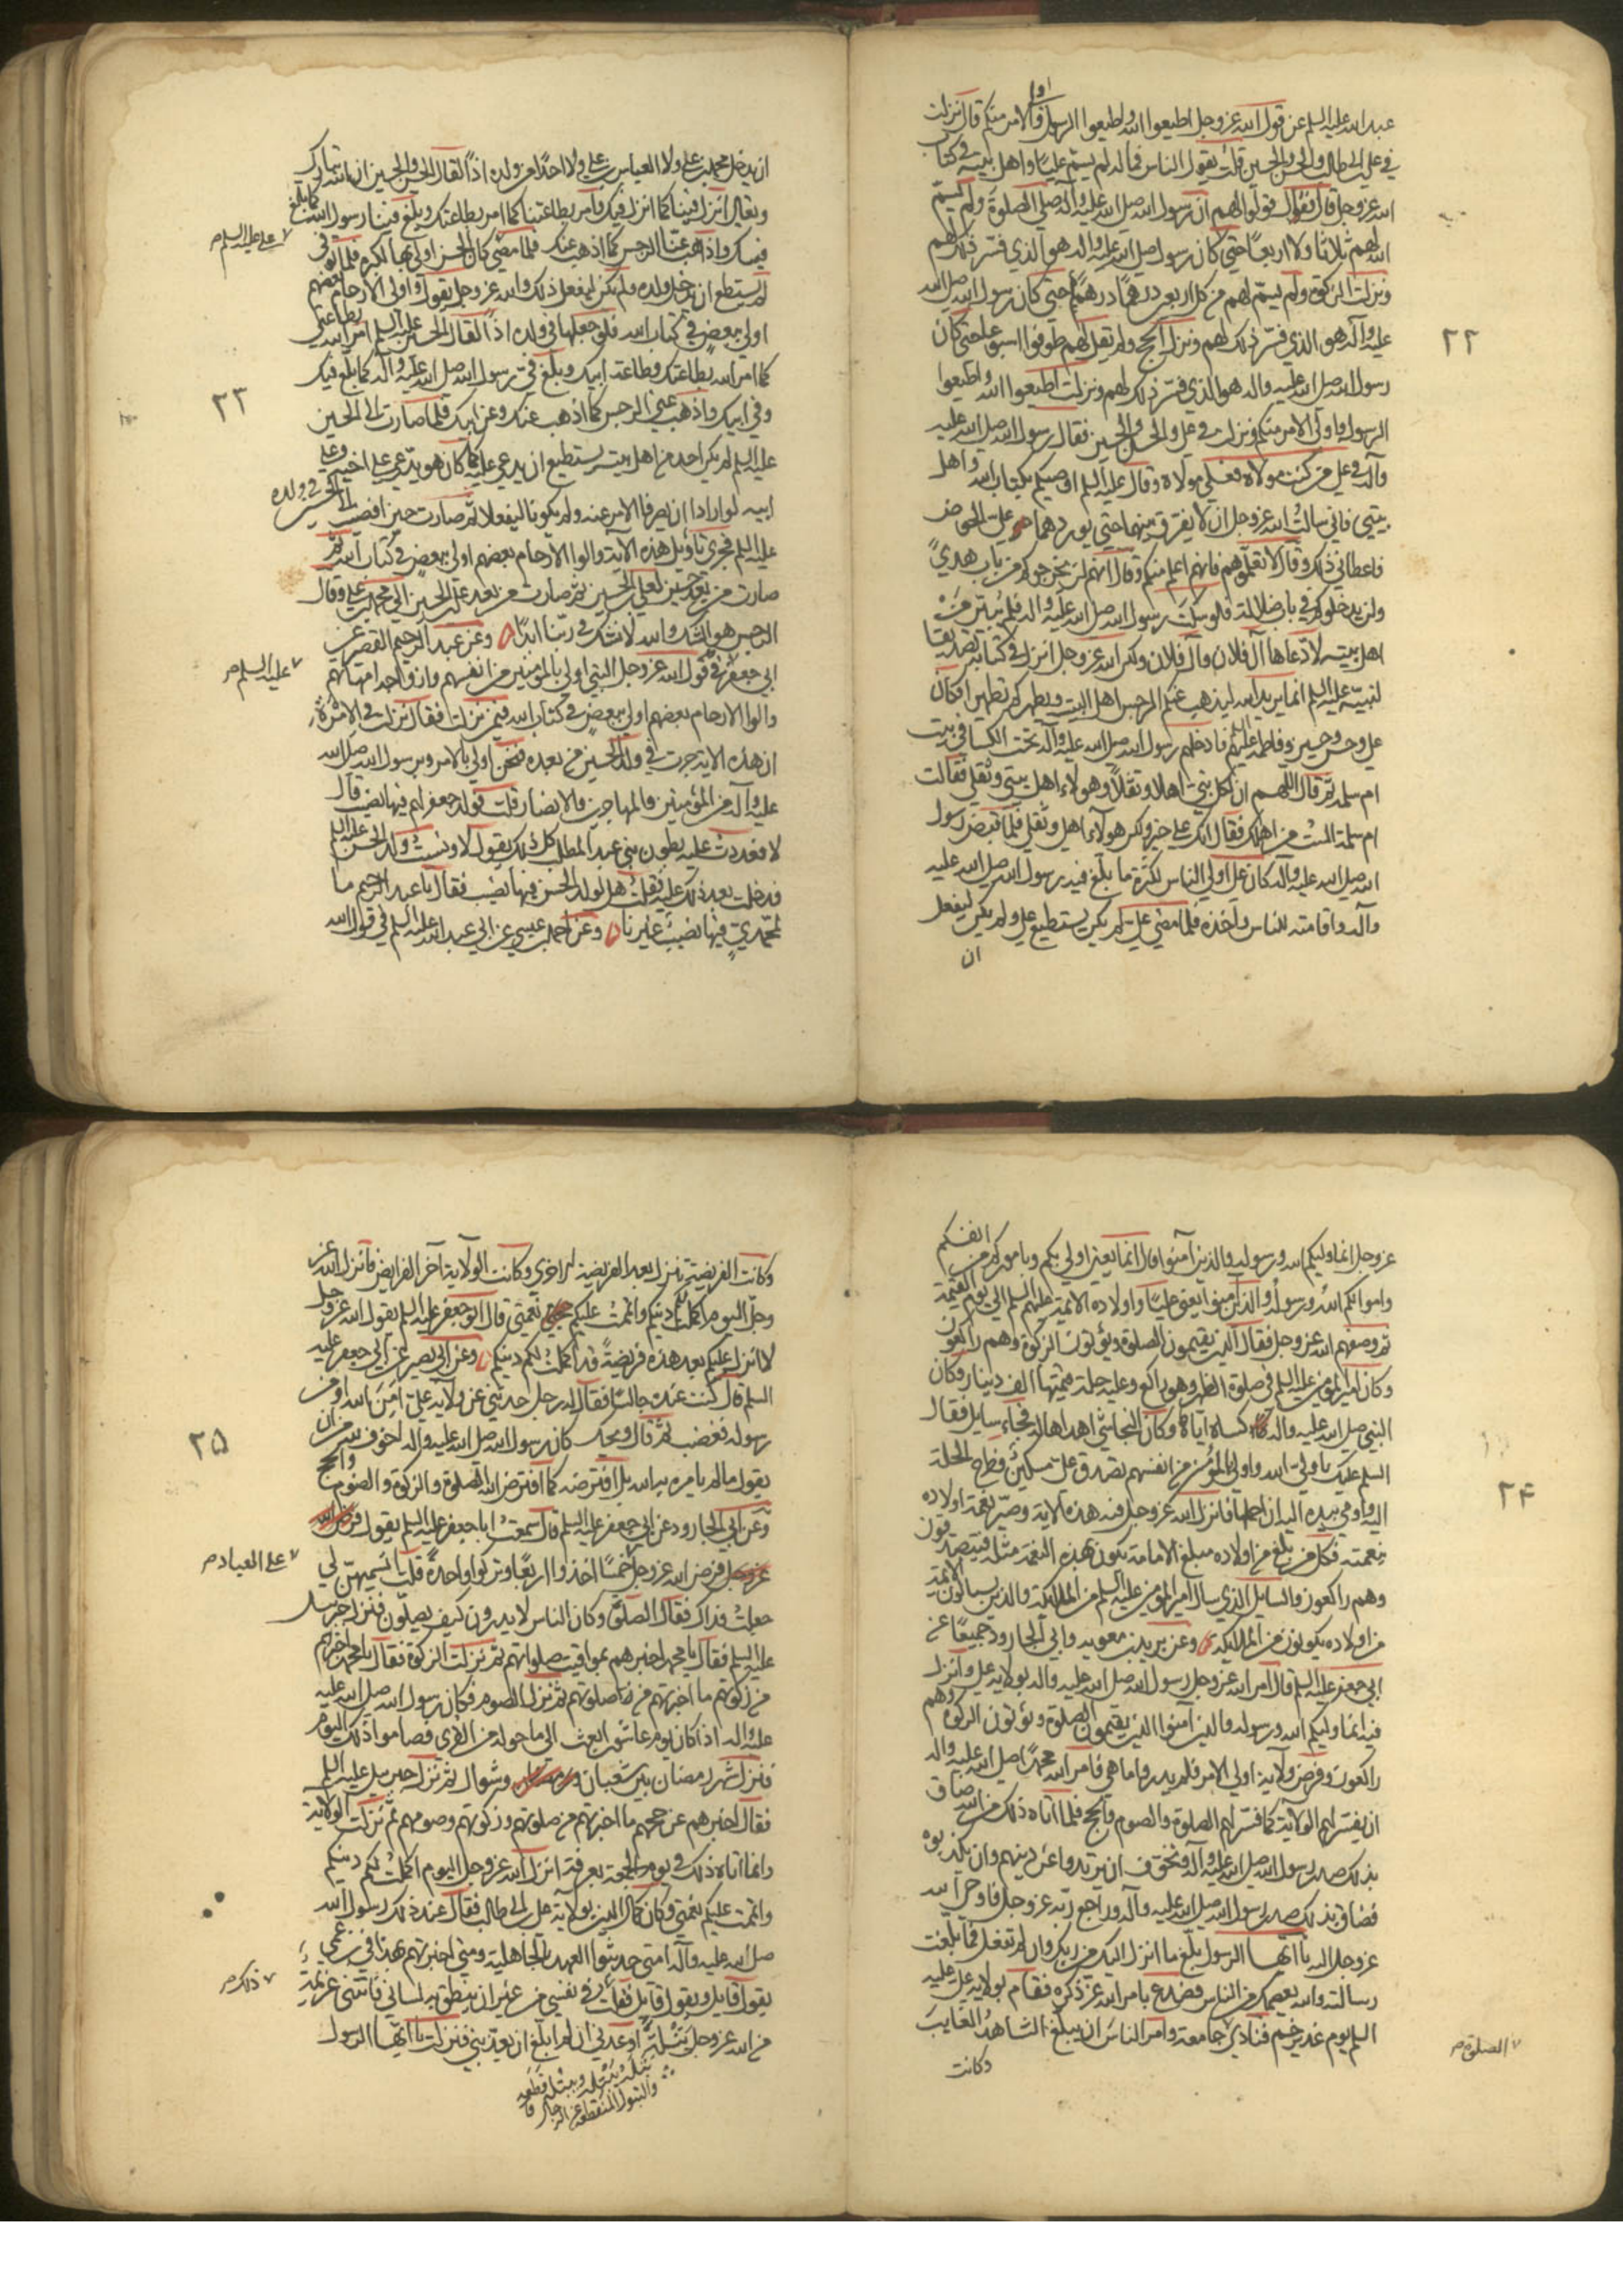 اولي
عبد الله عليه السلم عن قول الله عز وجل اطيعوا الله واطيعوا الرسول والامر منكم قال نزلت
في علي ابي طالب والحسن والحسين قلت يقول الناس فما له لم يسم عليا واهل بيته في كتاب
الله عز وجل قال فقال قولوا لهم ان رسول الله صلى الله عليه وآله صلي الصلوة ولم يسم
الله لهم ثلاثا ولا اربعا حتي كان رسول الله صلى الله عليه واله هو الذي فسر ذلك لهم
ونزلت الزكوة ولم يسم لهم من كل اربعين درهما درهم حتي كان رسول الله صلى الله
عليه وآله هو الذي فسر ذلك لهم ونزل الحج ولم يقل لهم طوفوا اسبوعا حتي كان
٢٢
رسول الله صلى الله عليه واله هو الذي فسر ذلك لهم ونزلت اطيعوا الله واطيعوا
الرسول واولي الامر منكم ونزلت في علي والحسن والحسين فقال رسول الله صلى الله عليه
وآله في علي من كنت مولاه فعلي مولاه وقال عليه السلم اوصيكم بكتاب الله واهل
بيتي فاني سالت الله عز وجل ان لا يفرق بينهما حتي يوردهما علي الحوض
فاعطاني ذلك وقال لا تعلموهم فانهم اعلم منكم وقال انهم لن يخرجوكم من باب هدي
ولن يدخلوكم في باب ضلالة فلو سكت رسول الله صلى الله عليه واله فلم يبين من
اهل بيته لادعاها آل فلان وآل فلان ولكن الله عز وجل انزل في كتابه تصديقا
لنبيه عليه السلم انما يريد الله ليذهب عنكم الرجس اهل البيت ويطهركم تطهيرا فكان
علي وحسن وحسين وفاطمة عليهم فادخلهم رسول الله صلى الله عليه وآله تحت الكسا في بيت
ام سلمة ثم قال اللهم ان لكل نبي اهلا وثقلا وهولاء اهل بيتي وثقلي فقالت
ام سلمة الست من اهلك فقال انك علي خير ولكن هولاء اهلي وثقلي فلما قبض رسول
الله صلى الله عليه وآله كان علي اولي الناس لكثرة ما بلغ فيه رسول الله صلى الله عليه
وآله واقامته للناس واخذه فلما مضي علي لم يكن يستطيع علي ولم يكن ليفعل
ان
ان يدخل محمد بن علي ولا العباس بن علي ولا احدا من ولده اذا لقال الحسن والحسين ان الله تبارك
وتعالي انزل فينا كما انزل فيك فامر بطاعتنا كما امر بطاعتك وبلغ فينا رسول الله كما بلغ
فيك واذهب عنا الرجس كما اذهب عنك فلما مضي كان الحسن اولي بها لكبره فلما توفي
علي عليه السلم
لم يستطع ان يدخل ولده ولم يكن ليفعل ذلك والله عز وجل يقول واولي الارحام بعضهم
اولي ببعض في كتاب الله فلو جعلها في ولده اذا لقال الحسين عليه السلم امر الله بطاعتي
كما امر الله بطاعتك وطاعة ابيك وبلغ في رسول الله صلى الله عليه وآله كما بلغ فيك
٢٣
وفي ابيك واذهب عني الرجس كما اذهب عنك وعن ابيك فلما صارت الي الحسين
عليه السلم لم يكن احد من اهل بيته يستطيع ان يدعي عليه كما كان هو يدعي علي اخيه وعلي
ابيه لو ارادا ان يصرفا الامر عنه ولم يكونا ليفعلا ثم صارت حين افضت الي الحسين في ولده
عليه السلم فجري تاويل هذه الآية والوا الارحام بعضهم اولي ببعض في كتاب الله ثم
صارت من بعد حسين لعلي الحسين ثم صارت من بعد علي الحسين الي محمد بن علي وقال
الرجس هو الشك والله لا نشك في ربنا ابدا وعن عبد الرحيم القصير عن
ابي جعفر في قول الله عز وجل النبي اولي بالمؤمنين من انفسهم وازواجه امهاتهم
عليه السلم
والوا الارحام بعضهم اولي ببعض في كتاب الله فيمن نزلت فقال نزلت في الامرة
ان هذه الاية جرت في ولد الحسين من بعده فنحن اولي بالامر وبرسول الله صلى الله
عليه وآله من المؤمنين والمهاجرين والانصار قلت فولد جعفر لهم فيها نصيب قال
لا فعددت عليه بطون بني عبد المطلب كل ذلك يقول لا ونسيت ولد الحسن عليه السلم
فدخلت بعد ذلك عليه فقلت هل لولد الحسن فيها نصيب فقال يا عبد الرحيم ما
لمحمدي فيها نصيب غيرنا وعن احمد بن عيسي عن ابي عبد الله عليه السلم في قول الله
عز وجل انما وليكم الله ورسوله والذين آمنوا قال انما يعني اولي بكم وباموركم من انفسكم
واموالكم الله ورسوله والذين آمنوا يعني عليا واولاده الائمة عليهم السلم الي يوم القيمة
ثم وصفهم الله عز وجل فقال الذين يقيمون الصلوة ويؤتون الزكوة وهم راكعون
وكان امير المؤمنين عليه السلم في صلوة الظهر وهو راكع وعليه حلة قيمتها الف دينار وكان
النبي صلى الله عليه واله كساه اياه وكان النجاشي اهداها له فجاء سايل فقال
السلم عليك يا ولي الله واولي المؤمنين من انفسهم تصدق علي مسكين فطرح الحلة
٢٤
اليه واومي بيده اليه ان احملها فانزل الله عز وجل فيه هذه الاية وصير نعمة اولاده
بنعمته فكل من بلغ من اولاده مبلغ الامامة يكون بهذه النعمة مثله فيتصدقون
وهم راكعون والسايل الذي سال امير المؤمنين عليه السلم من الملئكة والذين يسالون الائمة
من اولاده يكونون من الملئكة وعن بريد بن معوية وابي الجارود جميعا عن
ابي جعفر عليه السلم قال امر الله عز وجل رسول الله صلى الله عليه واله بولاية علي وانزل
فيه انما وليكم الله ورسوله والذين آمنوا الذين يقيمون الصلوة ويؤتون الزكوة وهم
راكعون وفرض ولاية اولي الامر فلم يدروا ما هي فامر الله محمدا صلى الله عليه واله
ان يفسر لهم الولاية كما فسر لهم الصلوة والصوم والحج فلما اتاه ذلك من الله ضاق
بذلك صدر رسول الله صلى الله عليه وآله وتخوف ان يرتدوا عن دينهم وان يكذبوه
فضاق بذلك صدر رسول الله صلى الله عليه وآله وراجع ربه عز وجل فاوحي الله
عز وجل اليه يا ايها الرسول بلغ ما انزل اليك من ربك وان لم تفعل فما بلغت
رسالته والله يعصمك من الناس فصدع بامر الله عز ذكره فقام بولاية علي عليه
السلم يوم غدير خم فنادي جامعة وامر الناس ان يبلغ الشاهد الغايب
الصلوة
وكانت
وكانت الفريضة تنزل بعد الفريضة الاخري وكانت الولاية آخر الفرايض فانزل الله عز
وجل اليوم اكملت لكم دينكم واتممت عليكم نعمتي قال ابو جعفر عليه السلم يقول الله عز وجل
لا انزل عليكم بعد هذه فريضة قد اكملت لكم دينكم وعن ابي بصير عن ابي جعفر عليه
السلم قال كنت عنده جالسا فقال له رجل حدثني عن ولاية علي امن الله او من
رسوله فغضب ثم قال ويحك كان رسول الله صلى الله عليه واله اخوف لله من ان
٢٥
يقول ما لم يامره به الله بل افترضه كما افترض الله الصلوة والزكوة والصوم والحج
وعن ابي الجارود عن ابي جعفر عليه السلم قال سمعت ابا جعفر عليه السلم يقول فرض الله
عز وجل فرض الله عز وجل خمسا اخذوا اربعا وتركوا واحدة قلت اتسميهن لي
علي العباد
جعلت فداك فقال الصلوة وكان الناس لا يدرون كيف يصلون فنزل جبرئيل
عليه السلم فقال يا محمد اخبرهم بمواقيت صلواتهم ثم نزلت الزكوة فقال يا محمد اخبرهم
من زكوتهم ما اخبرتهم من صلوتهم ثم نزل الصوم فكان رسول الله صلى الله عليه
عليه واله اذا كان يوم عاشورا بعث الي ما حوله من القري فصاموا ذلك اليوم
فنزل شهر رمضان بين شعبان وشوال ثم نزل جبرئيل عليه السلم
فقال اخبرهم عن حجهم ما اخبرتهم من صلوتهم وزكوتهم وصومهم ثم نزلت الولاية
وانما اتاه ذلك في يوم الجمعة بعرفة انزل الله عز وجل اليوم اكملت لكم دينكم
واتممت عليكم نعمتي وكان كمال الدين بولاية علي ابي طالب فقال عند ذلك رسول الله
صلى الله عليه وآله امتي حديثوا العهد بالجاهلية ومتي اخبرتهم بهذا في ابن عمي
يقول قايل ويقول قايل فقلت في نفسي من غير ان ينطق به لساني فاتتني عزيمة
ذلك
من الله عز وجل بتلة اوعدني ان لم ابلغ ان يعذبني فنزلت يا ايها الرسول
بتله يبتله ويبتله قطعه
والبتول المنقطعة عن الرجال